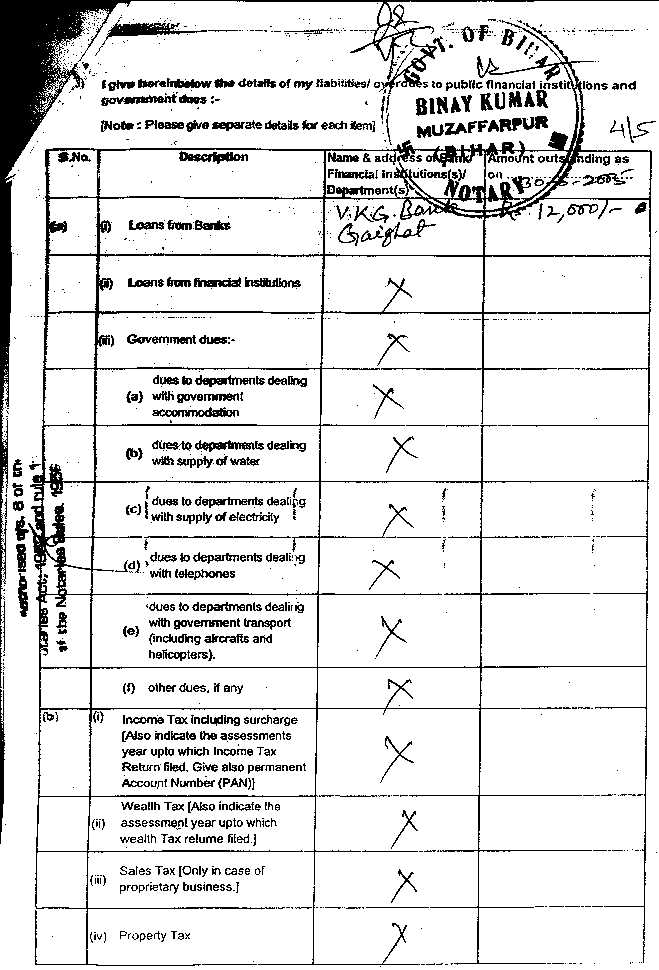 GOVT. OF BIHAR
BINAY KUMAR
MUZAFFARPUR
(BIHAR)
NOTARY
4/5
I give hereinbelow the details of my liabilities/ overdues to public financial institutions and
government dues :-
[Note : Please give separate details for each item]
S.No.
Description
Name & address of Bank/
Financial institutions(s)/
Department(s)
Amount outstanding as
on
2005
(a)
(i) Loans from Banks
V.K.G. Bank
Gaighat
Rs 12,000/-
(ii) Loans from financial institutions
X
(iii) Government dues:-
X
dues to departments dealing
(a) with government
accommodation
X
(b) dues to departments dealing
with supply of water
X
(c) dues to departments dealing
with supply of electricity
X
(d) dues to departments dealing
with telephones
X
dues to departments dealing
with government transport
(e) (including aircrafts and
helicopters).
X
(f) other dues, if any
X
(b)
(i) Income Tax including surcharge
[Also indicate the assessments
year upto which Income Tax
Return filed. Give also permanent
Account Number (PAN)]
X
Wealth Tax [Also indicate the
(ii) assessment year upto which
wealth Tax returne filed.]
X
(iii) Sales Tax [Only in case of
proprietary business.]
X
(iv) Property Tax
X
Authorised u/s. 8 of
Notaries Act, 1952 and rule
of the Notaries Rules, 1956